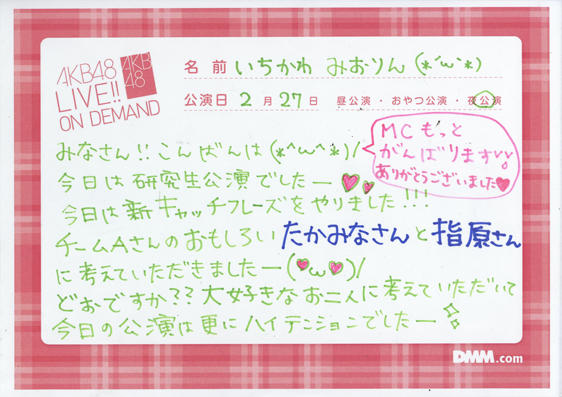 AKB48
LIVE!!
ON DEMAND
AKB
48
名前 いちかわ みおりん(*´ω`*)
公演日 2月27日 昼公演・おやつ公演・夜公演
MCもっと
がんばります
ありがとうございました♥
みなさん!!こんばんは(*^ω^*)/
今日は研究生公演でしたー♥♥
今日は新キャッチフレーズをやりました!!!
チームAさんのおもしろいたかみなさんと指原さん
に考えていただきましたー(♥ω♥)/
どおですか??大好きなお二人に考えていただいて
今日の公演は更にハイテンションでしたー!
DMM.com